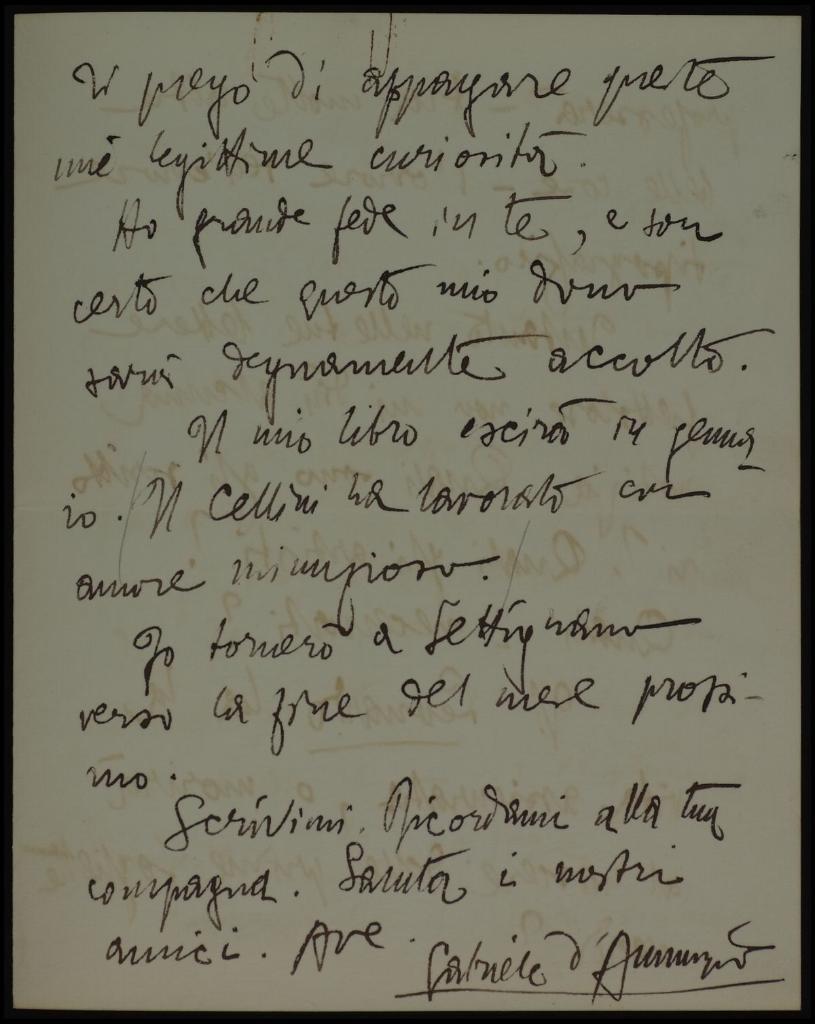 Ti prego di appagare queste
mie legittime curiosità.
Ho grande fede in te, e son
certo che questo mio dono
sarà degnamente accolto.
Il mio libro escirà in genna-
io. Il Cellini ha lavorato con
amore minuzioso.
Io tornerò a Settignano
verso la fine del mese prossi-
mo.
Scrivimi. Ricordami alla tua
compagna. Saluta i nostri
amici. Ave.
Gabriele d'Annunzio